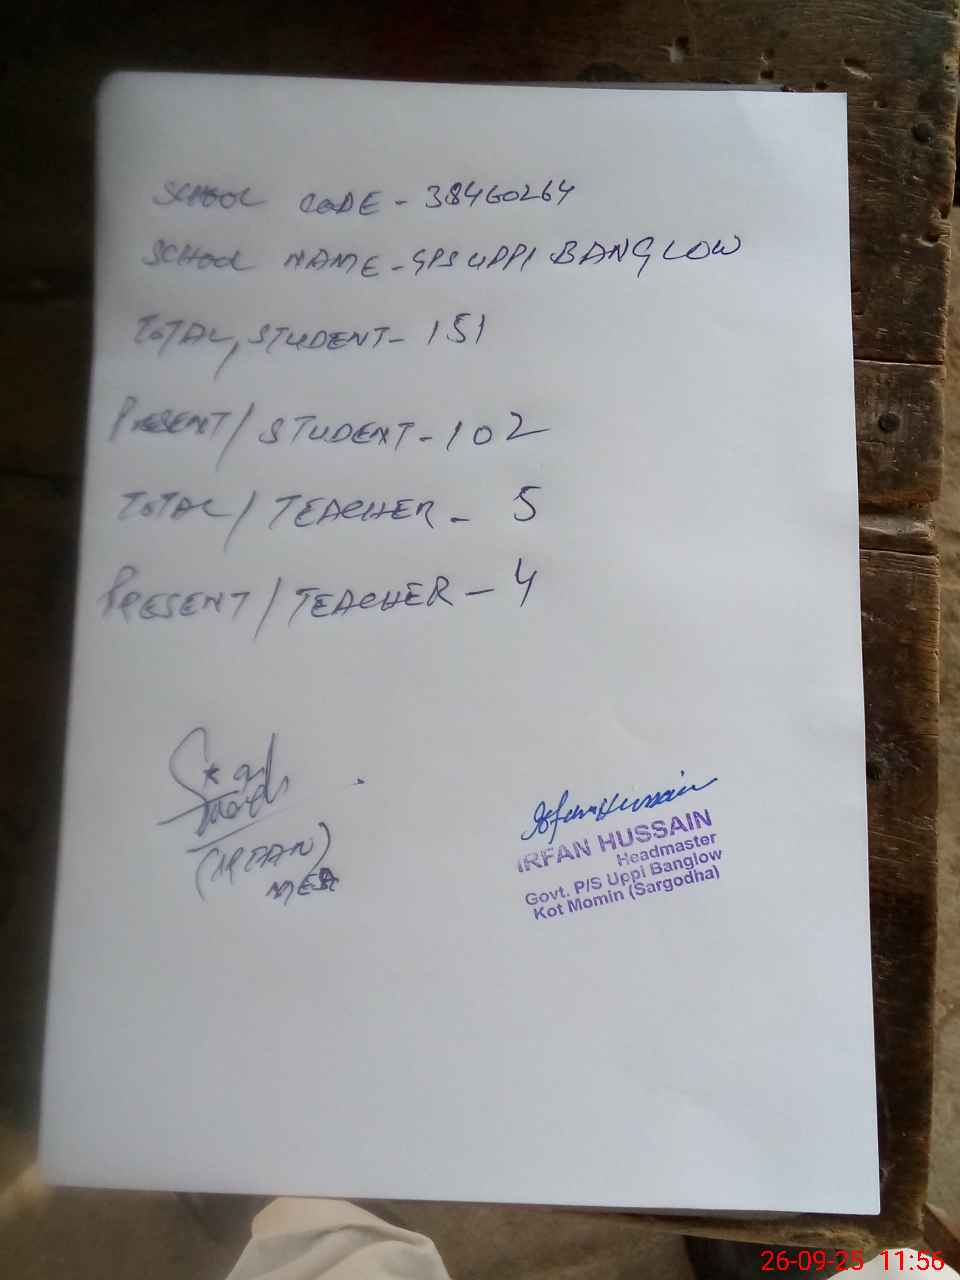 SCHOOL CODE - 38460264
SCHOOL NAME - GPS UPPI BANGLOW
TOTAL, STUDENT - 151
PRESENT / STUDENT - 102
TOTAL / TEACHER - 5
PRESENT / TEACHER - 4
(IRFAN)
MEA
Irfan Hussain
IRFAN HUSSAIN
Headmaster
Govt. P/S Uppi Banglow
Kot Momin (Sargodha)
26-09-25 11:56